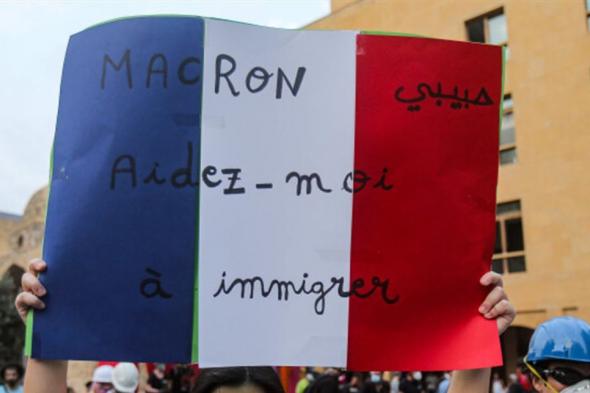 MACRON حبيبي
Aidez-moi
à immigrer